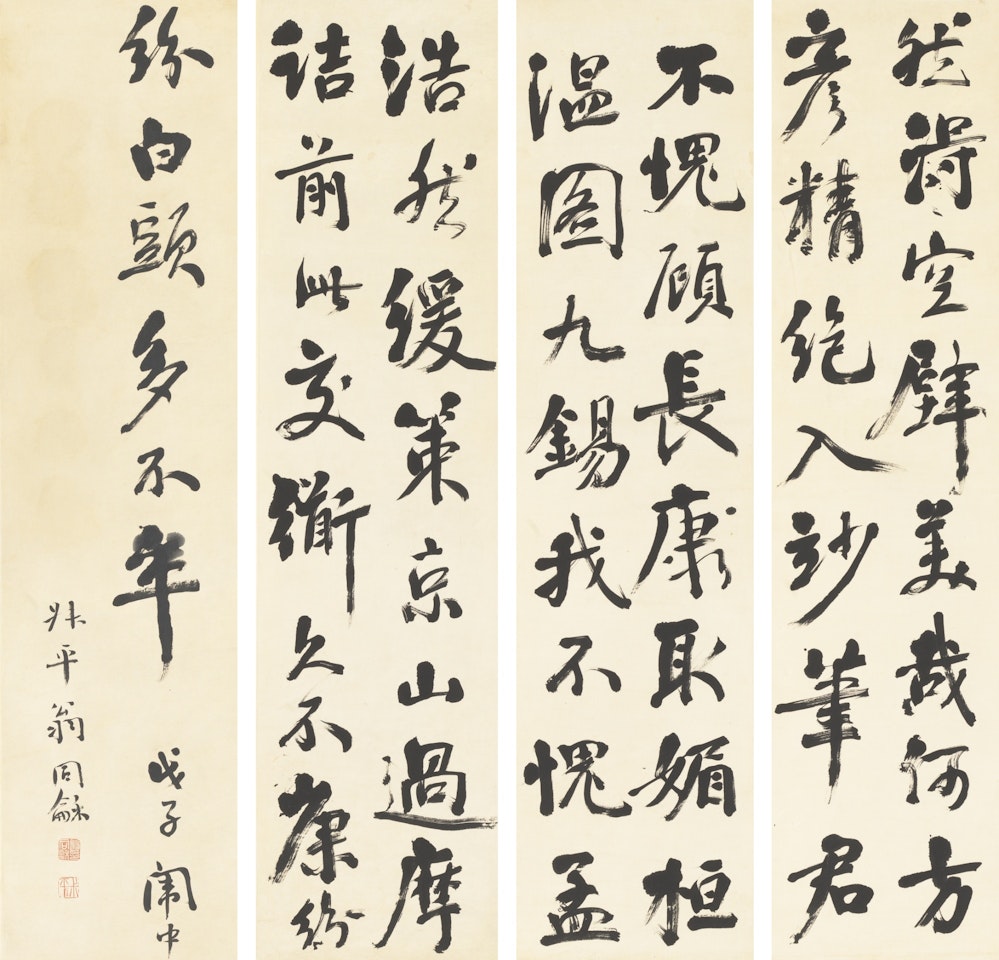 然得空壁美哉何方
彥精絕入妙筆君
不愧顧長康恥媚桓
溫圖九錫我不愧孟
浩然緩策京山過摩
詰前此交久不紛
紛白頭多不年 戊子闈中
叔平翁同龢